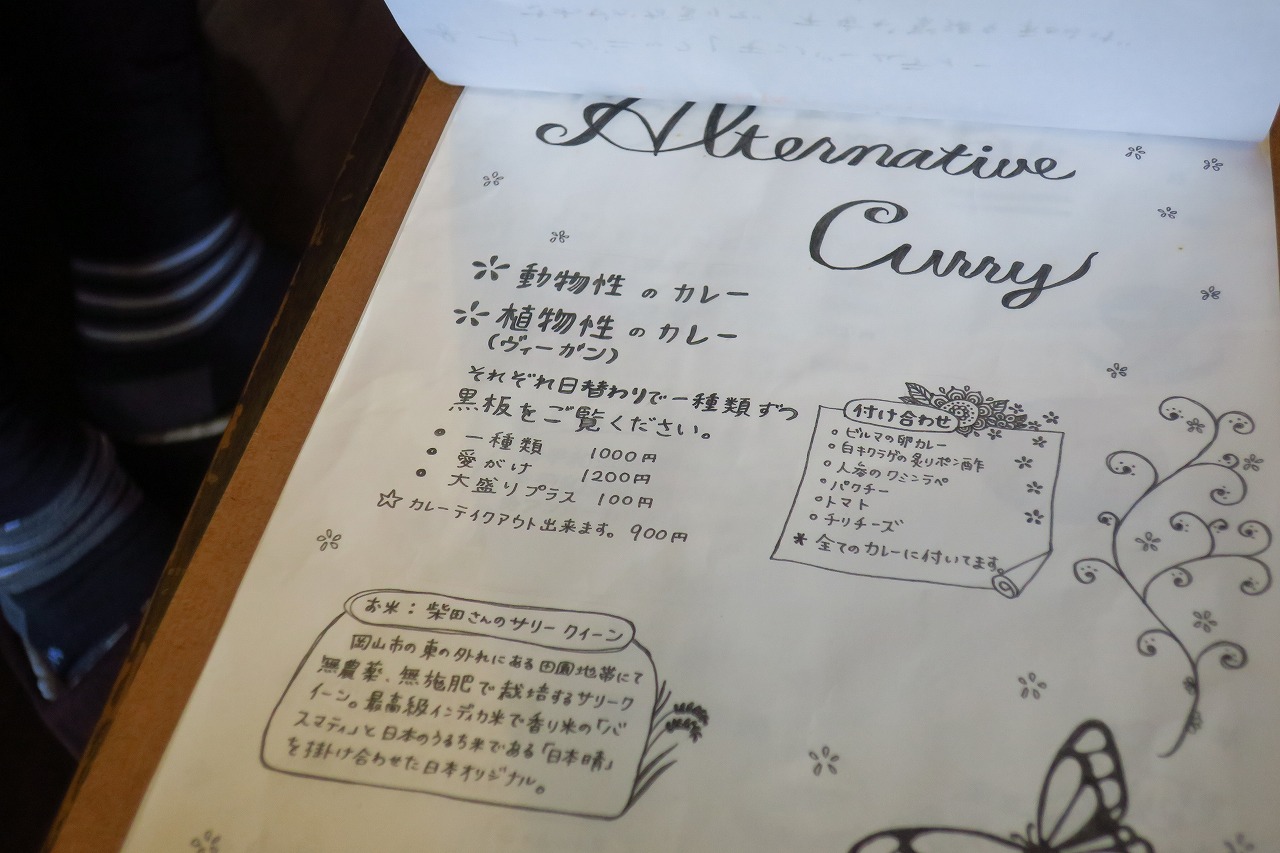 Alternative
Curry
動物性のカレー
植物性のカレー
(ヴィーガン)
それぞれ日替わりで一種類ずつ
黒板をご覧ください。
• 一種類 1000円
• 愛がけ 1200円
• 大盛りプラス 100円
☆カレーテイクアウト出来ます。900円
付け合わせ
○ビルマの卵カレー
○白キクラゲの炙りポン酢
○人参のクミンラペ
○パクチー
○トマト
○チリチーズ
* 全てのカレーに付いてます。
お米:柴田さんのサリークイーン
岡山市の東の外れにある田園地帯にて
無農薬、無施肥で栽培するサリーク
イーン。最高級インディカ米で香り米の「バ
スマティ」と日本のうるち米である「日本晴」
を掛け合わせた日本オリジナル。